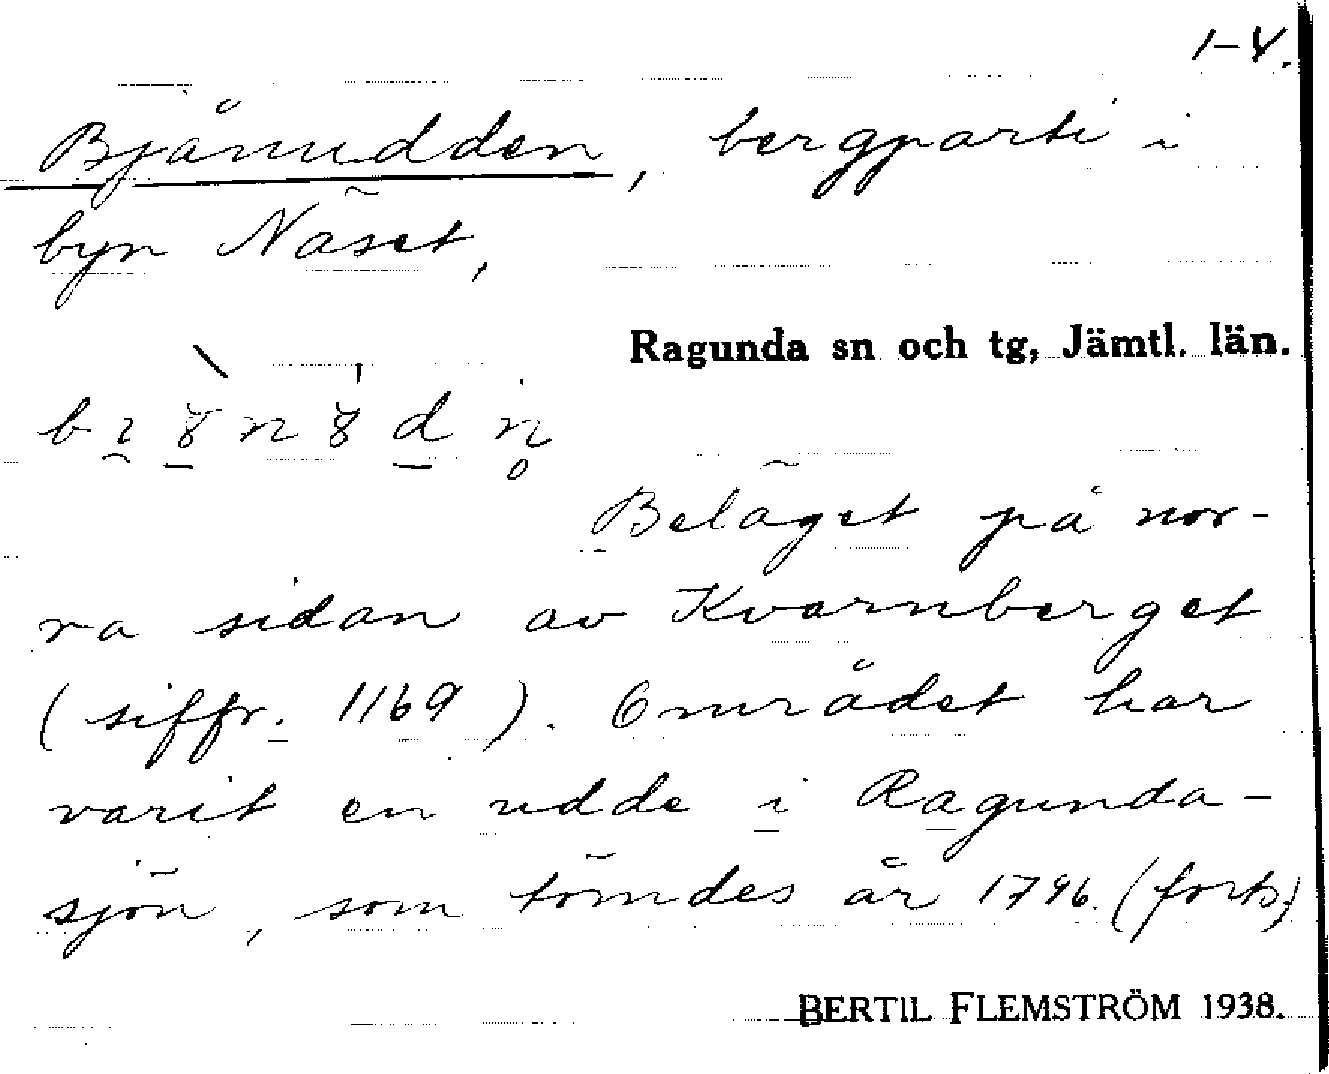 1-4.
Bjånudden, bergparti i
byn Näset,
Ragunda sn och tg, Jämtl. län.
Beläget på nor-
ra sidan av Kvarnberget
(siffr. 1169). Området har
varit en udde i Ragunda-
sjön, som tömdes år 1796. (forts.)
BERTIL FLEMSTRÖM 1938.